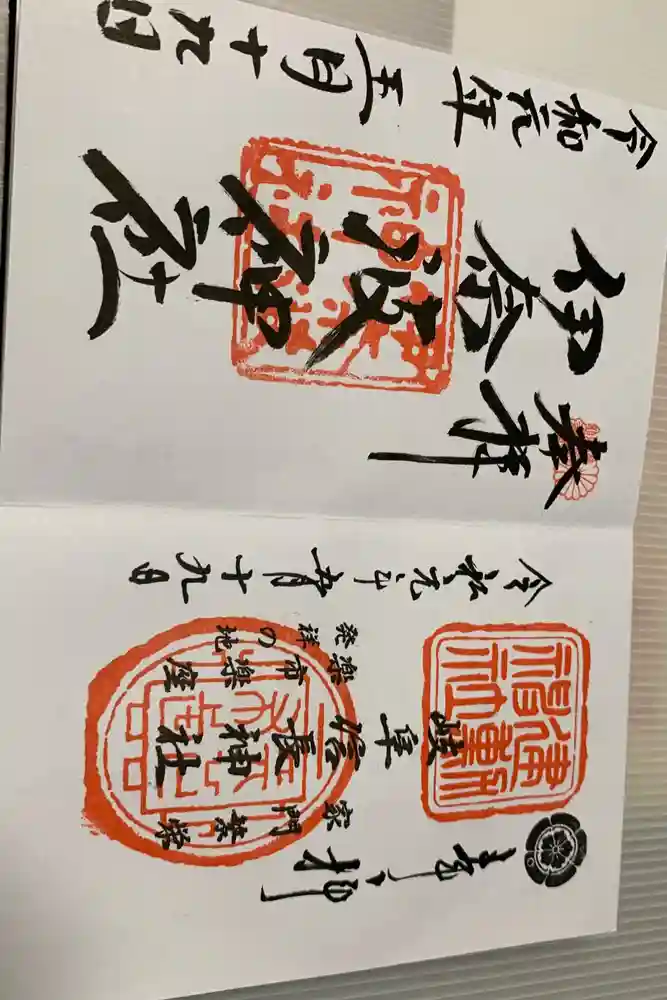 奉拝
岐阜信長神社
楽市楽座
発祥の地
令和元年五月十九日
奉拝
伊奈波神社
令和元年五月十九日